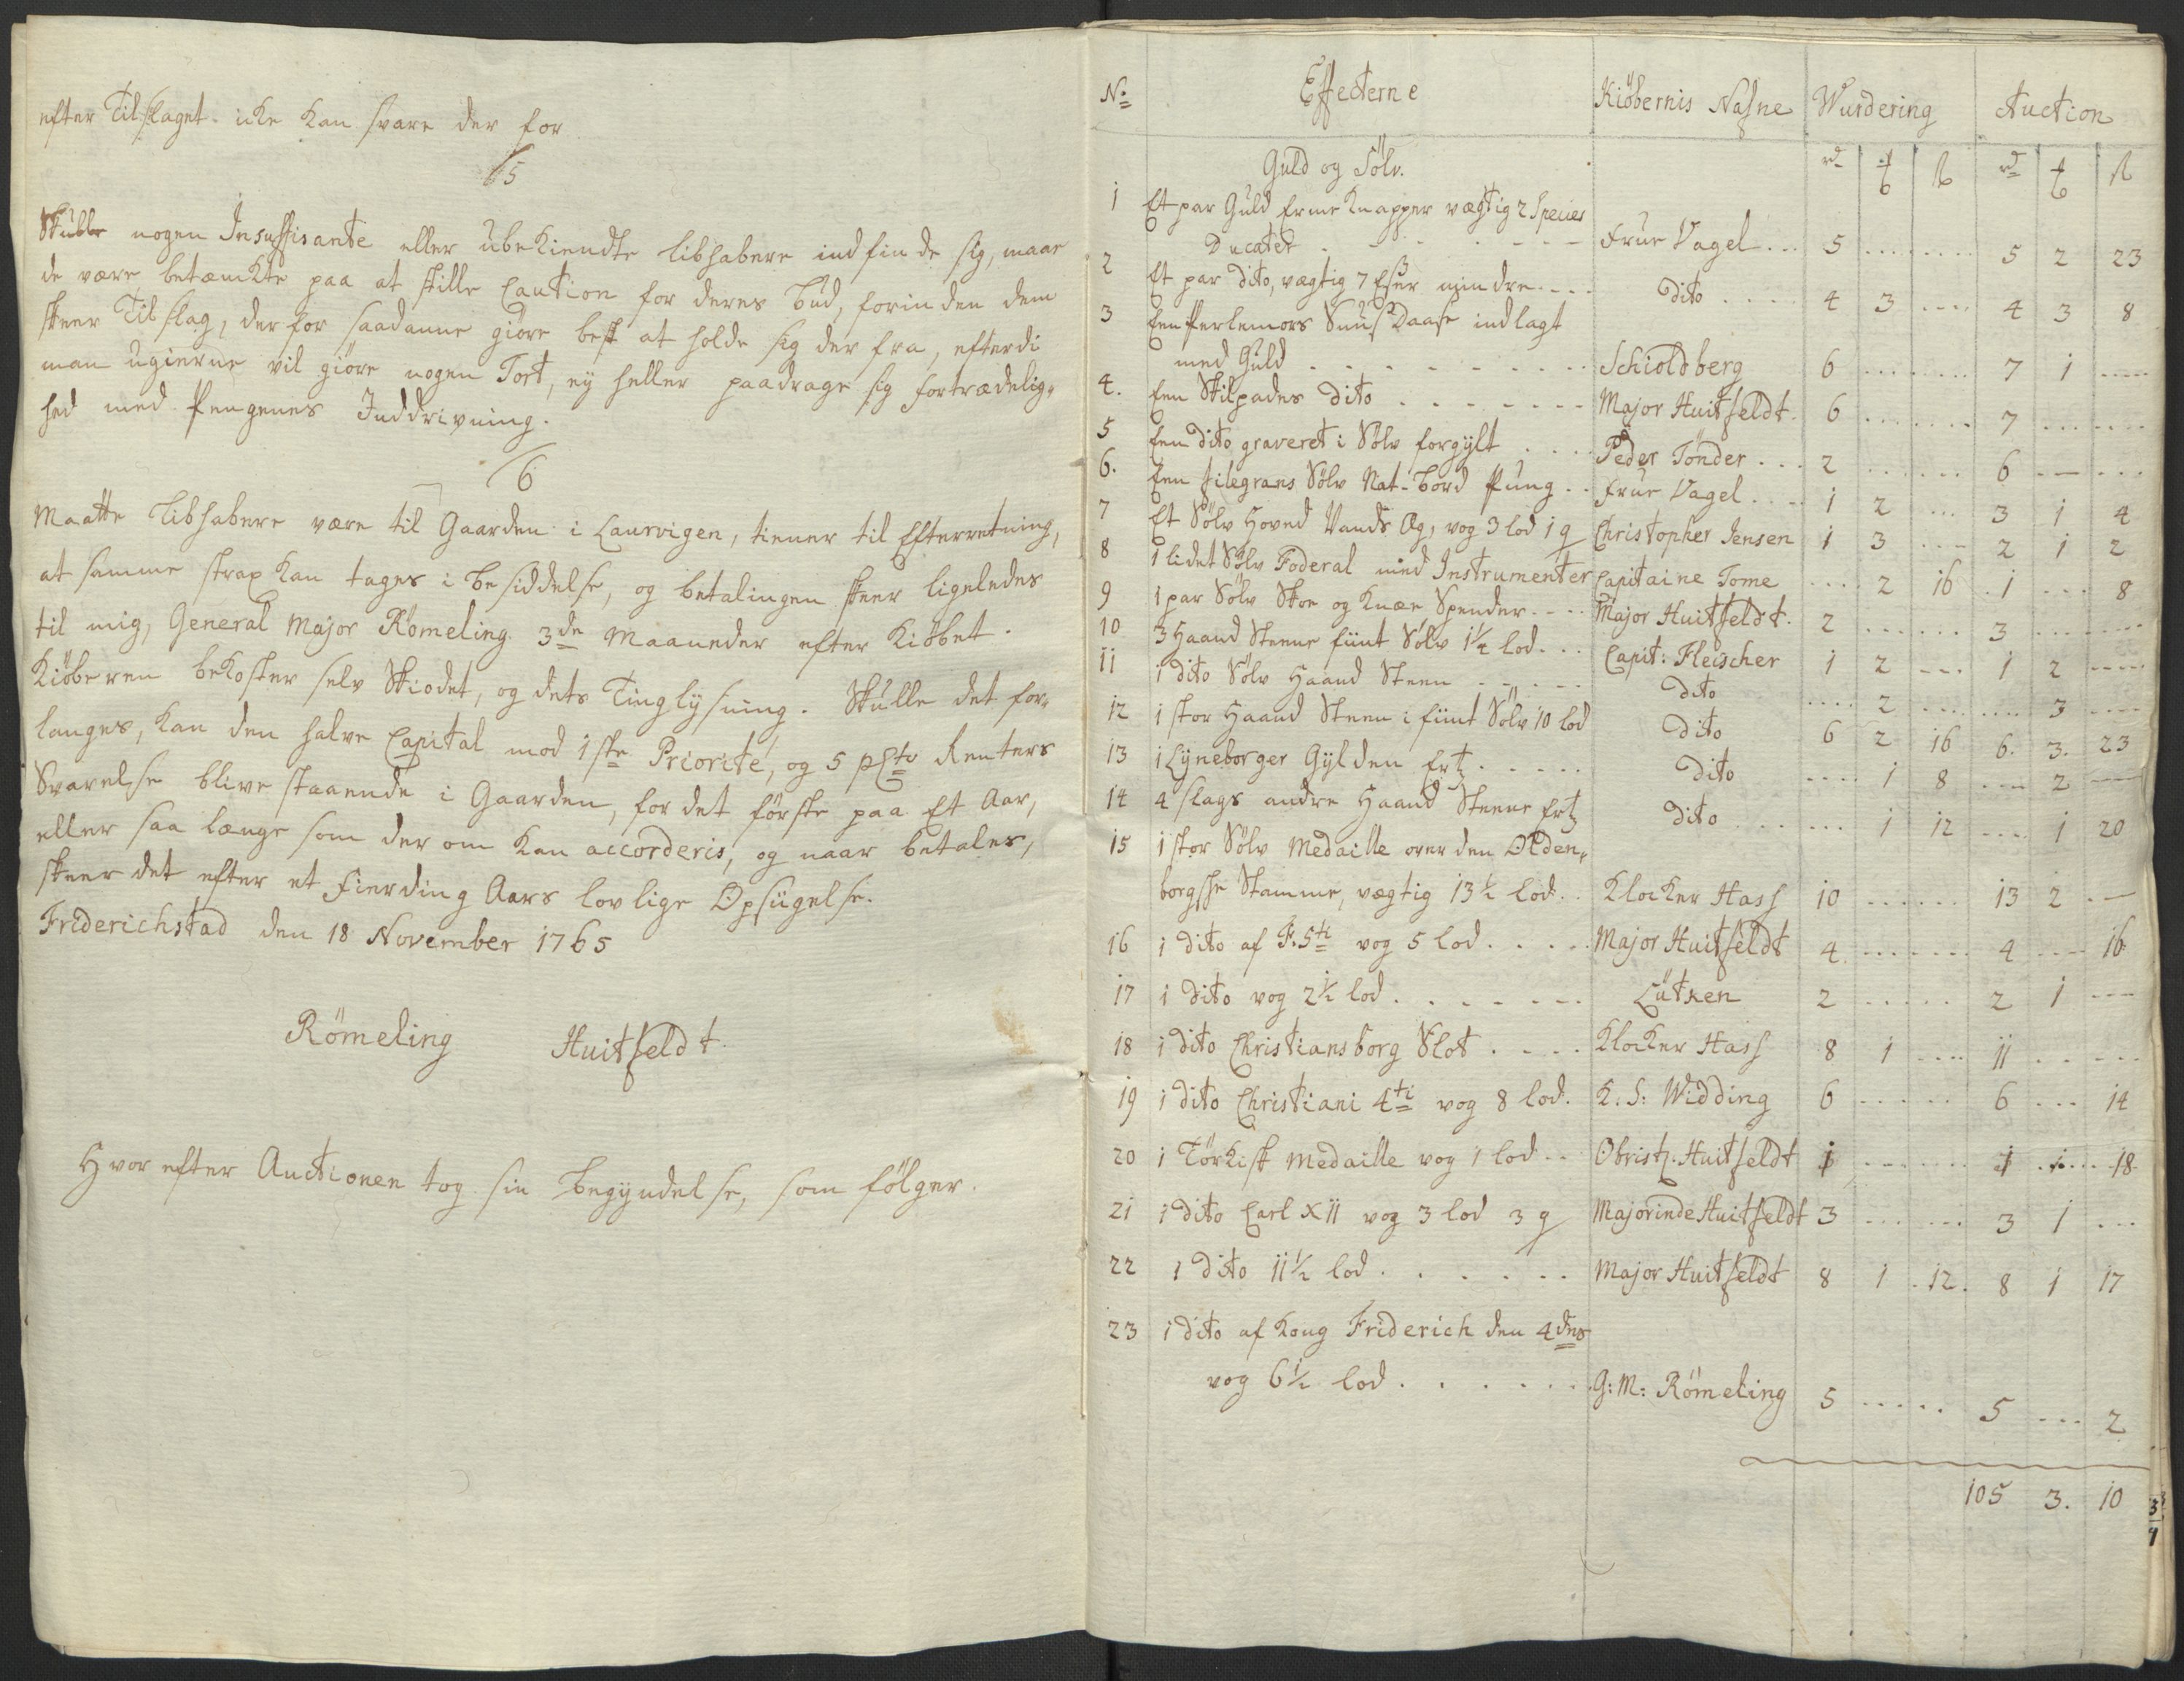 efter Tilslaget icke kan svare der for
5
Skulle nogen Insuffisante eller ubekiendte libhabere indfinde sig, maae
de være betænckte paa at stille Caution for deres bud, forinden dem
skeer Tilslag, derfor saadanne giöre best at holde sig der fra, efterdi
man ugierne vil giöre nogen Tort, ey heller paadrage sig fortrædelig-
hed med Pengenes Inddrivning.
6
Maatte libhabere være til Gaarden i Laurvigen, tiener til Efterretning,
at samme strax kan tages i besiddelse, og betalingen skeer ligeledes
til mig, General Major Römeling 3de Maaneder efter Kiöbet.
Kiöberen bekoster selv Skiödet, og dets Tinglysning. Skulle det for-
langes, kan den halve Capital mod 1ste Priorité, og 5 pCto Renters
Svarelse blive staaende i Gaarden, for det förste paa Et Aar,
eller saa længe som der om kan accorderis, og naar betales,
skeer det efter et fierding Aars lovlige Opsigelse.
Friderichstad den 18 November 1765
Römeling Huitfeldt.
Hvor efter Auctionen tog sin begyndelse, som fölger.
No: Effecterne Kiöbernis Nafne Wurdering Auction
Guld og Sölv. rd ß rd ß
1 Et par Guld Erme Knapper vægtig 2 Species
Ducater Frue Vagel 5 5 2 23
2 Et par dito, vægtig 7 Eser mindre dito 4 3 4 3 8
3 Een Perlemors Snuus Daase indlagt
med Guld Schioldberg 6 7 1
4. Een Skilpades dito Major Huitfeldt. 6 7
5 Een dito graveret i Sölv forgylt Peder Tönder 2 6
6. Een filegrans Sölv Nat-bord Pung Frue Vagel 1 2 3 1 4
7 Et Sölv Hoved Vands Æg, vog 3 lod 1 q Christopher Jensen 1 3 2 1 2
8 1 lidet Sölv Foderal med Instrumenter Capitaine Tome 2 16 1 8
9 1 par Sölv Skoe og Knæe Spender Major Huitfeldt. 2 3
10 3 Haand Steene fiint Sölv 1 1/4 lod Capit: Fleischer 1 2 1 2
11 1 dito Sölv Haand Steen dito 2 3
12 1 stor Haand Steen i fiint Sölv 10 lod dito 6 2 16 6. 3. 23
13 1 Lyneborger Gylden Ertz dito 1 8 2
14 4 slags andre Haand Steene Ertz dito 1 12 1 20
15 1 stor Sölv Medaille over den Olden-
borgske Stamme, vægtig 13 1/2 lod Klocker Hass 10 13 2
16 1 dito af F. 5ti vog 5 lod Major Huitfeldt 4 4 16
17 1 dito vog 2 1/2 lod Lütken 2 2 1
18 1 dito Christiansborg Slot Klocker Hass 8 1 11
19 1 dito Christiani 4ti vog 8 lod. K. S: Widding 6 6 14
20 1 Törkisk Medaille vog 1 lod Obristl. Huitfeldt 1 1 18
21 1 dito Carl XII vog 3 lod 3 q Majorinde Huitfeldt 3 3 1
22 1 dito 11 1/2 lod Major Huitfeldt 8 1 12. 8 1 17
23 1 dito af Kong Friderich den 4des
vog 6 1/2 lod G: M: Römeling 5 5 2
105 3. 10